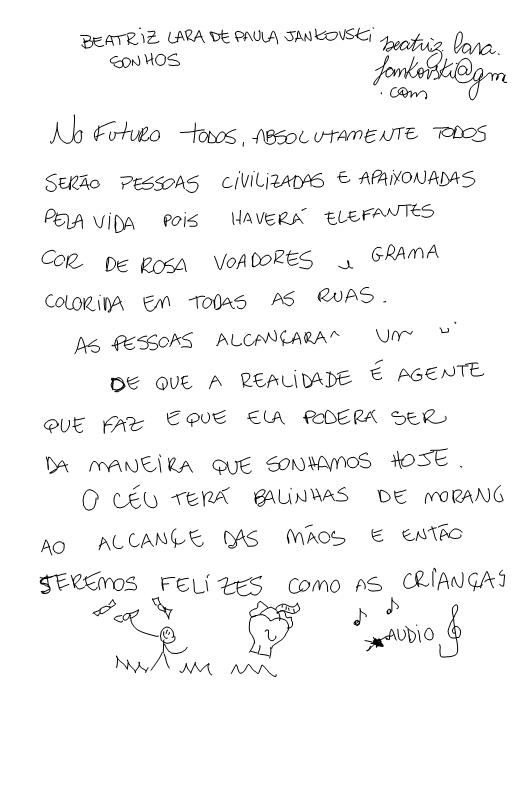 BEATRIZ LARA DE PAULA JANKOVSKI
SONHOS
beatriz lara.
jankovski@gm
.com
NO FUTURO TODOS, ABSOLUTAMENTE TODOS
SERÃO PESSOAS CIVILIZADAS E APAIXONADAS
PELA VIDA POIS HAVERÁ ELEFANTES
COR DE ROSA VOADORES GRAMA
COLORIDA EM TODAS AS RUAS.
AS PESSOAS
DE QUE A REALIDADE É AGENTE
QUE FAZ E QUE ELA PODERÁ SER
DA MANEIRA QUE SONHAMOS HOJE.
O CÉU TERÁ BALINHAS DE MORANG
AO ALCANÇE DAS MÃOS E ENTÃO
SEREMOS FELIZES COMO AS CRIANÇAS
AUDIO